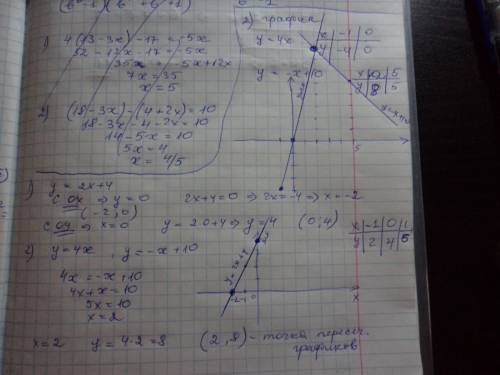 1) 4(13-3x)-17 = -5x
52-12x-17 = -5x
35x = -5x+12x
7x = 35
x = 5
2) (18-3x)-(4+2x)=10
18-3x-4-2x=10
14-5x=10
5x=4
x = 4/5
2) графики
y=4x
x | -1 | 0
y | -4 | 0
y = -x+10
x | 0 | 5
y=-x+10
5
1) y = 2x+4
с OX ⇒ y=0 2x+4=0 ⇒ 2x=-4 ⇒ x=-2
(-2;0)
с OY ⇒ x=0 y=2·0+4 ⇒ y=4 (0;4)
x | -1 | 0 | 1
y | 2 | 4 | 5
2) y=4x , y=-x+10
4x=-x+10
4x+x=10
5x=10
x=2
y=2x+4
-2 -1 0
x
x=2 y=4·2=8 (2;8) - точка пересеч.
графиков